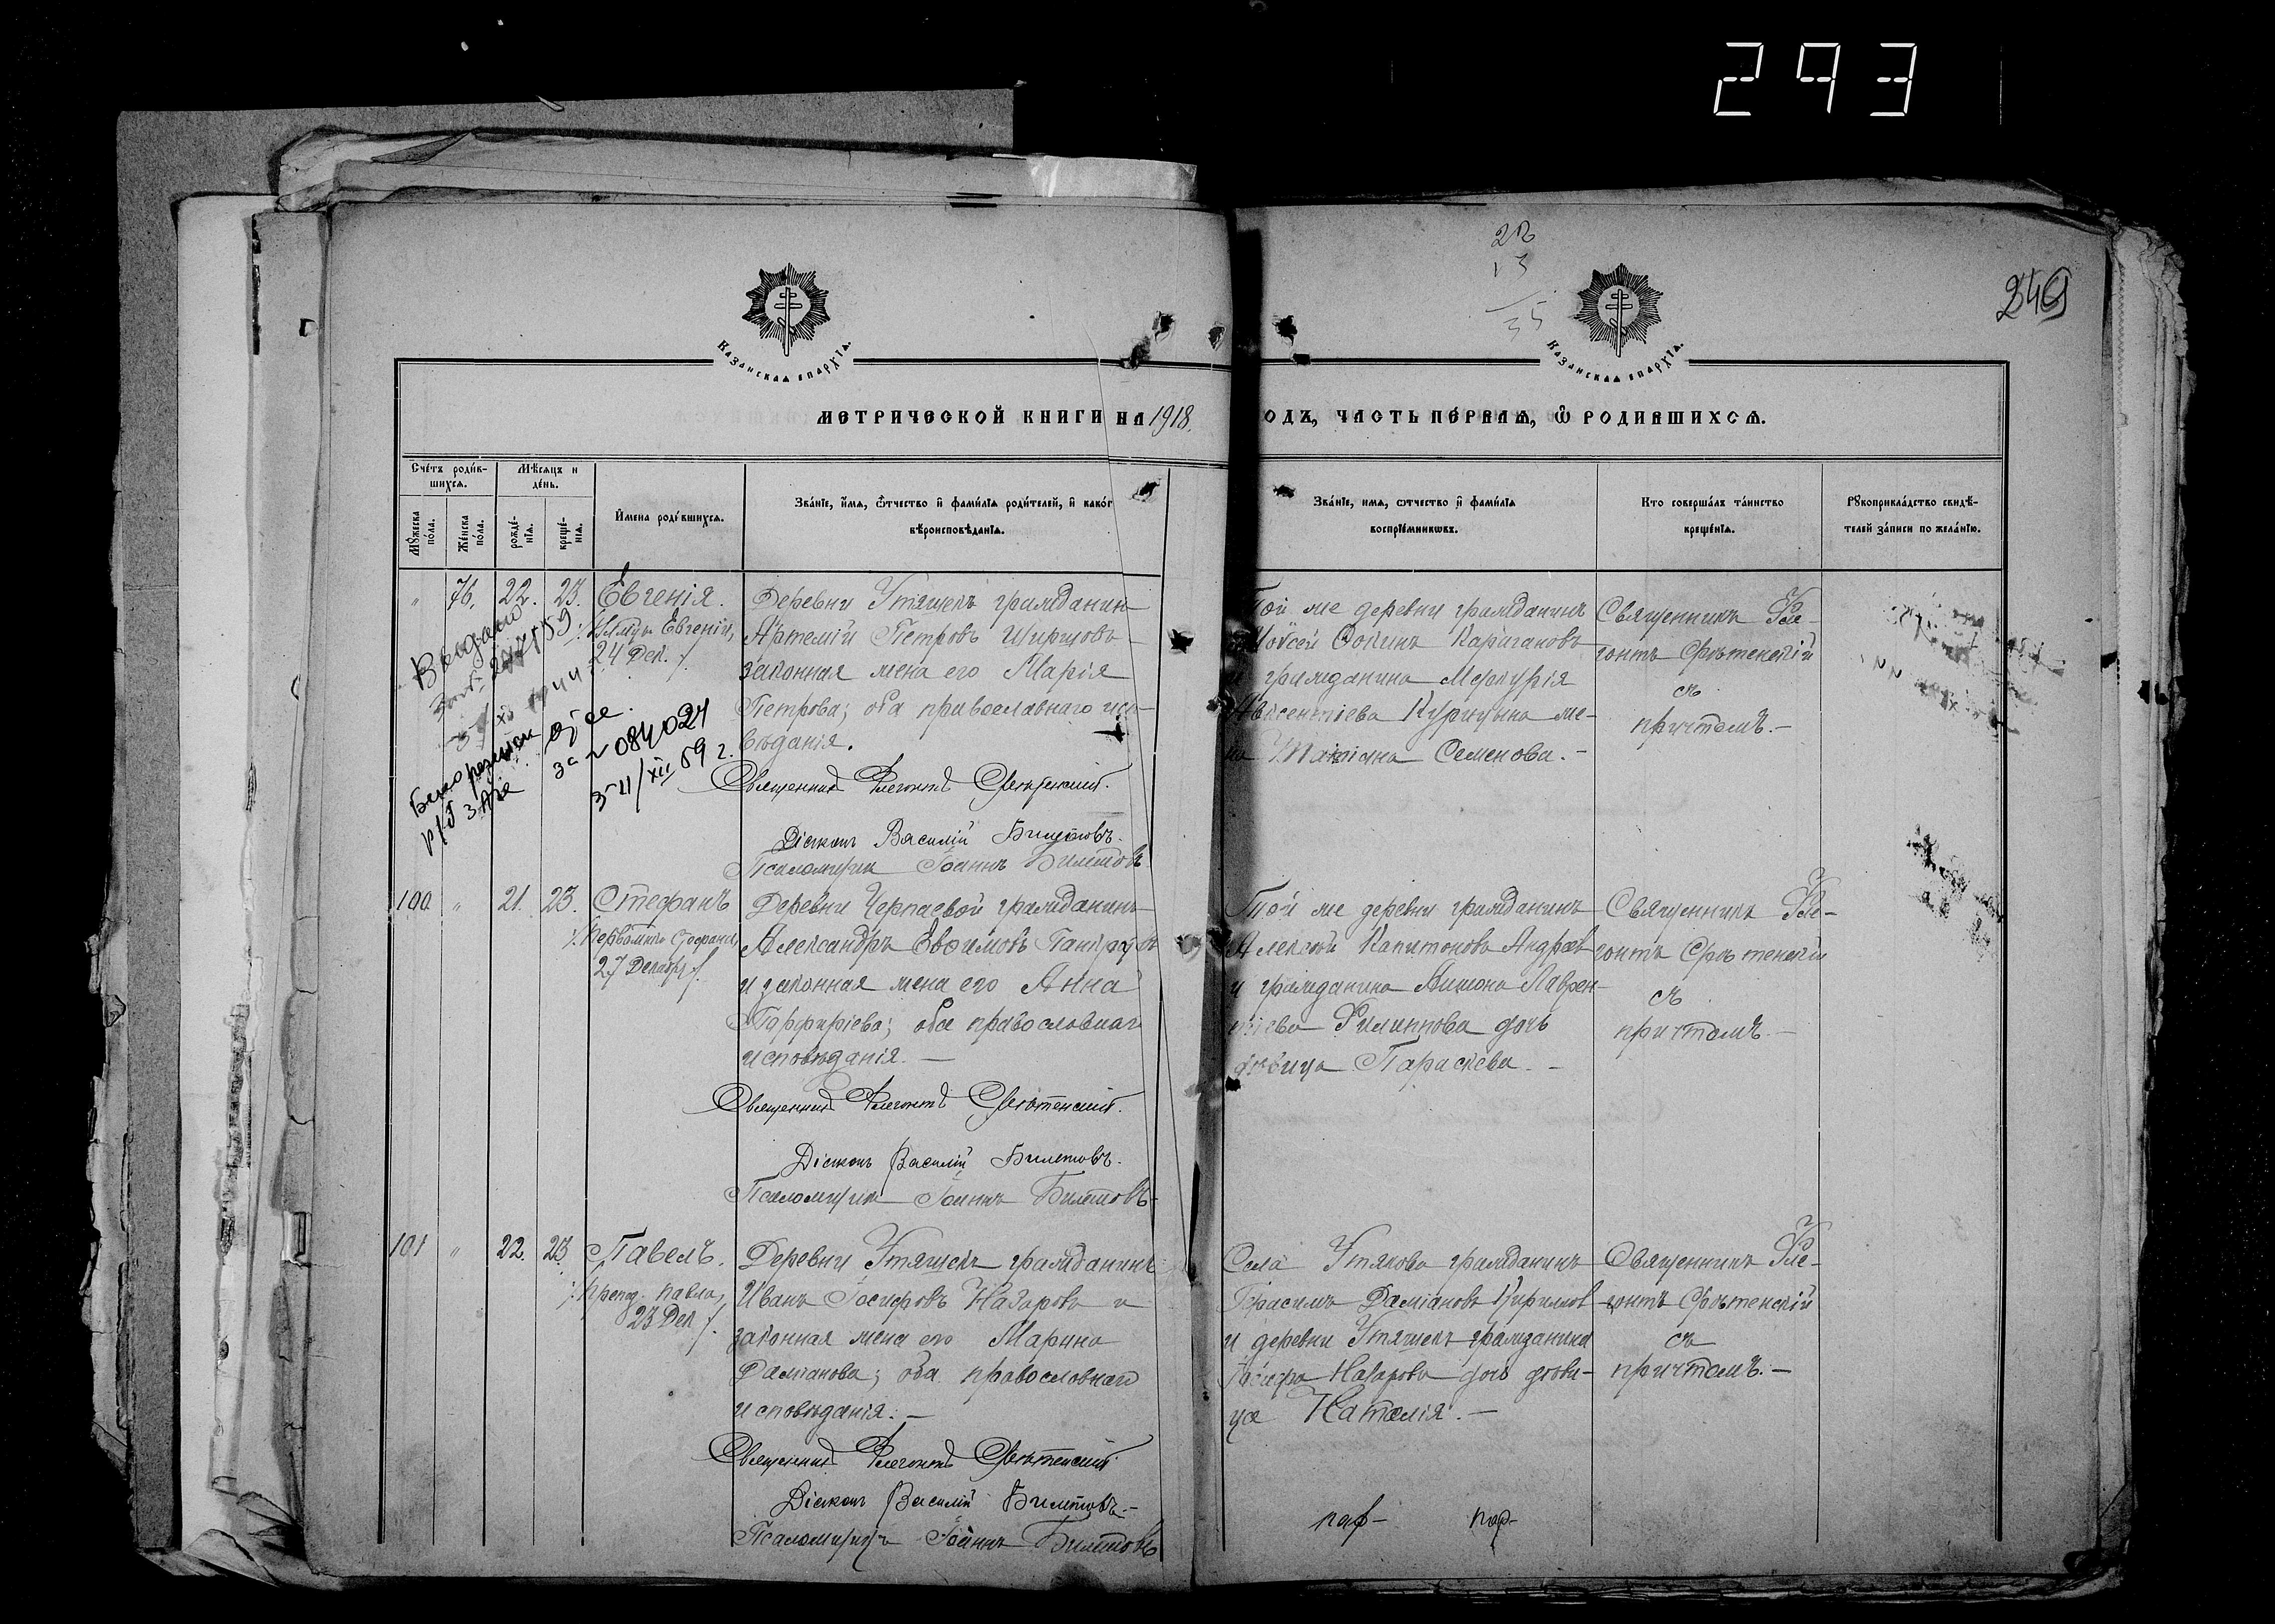 293
22
13
35
249
Казанская епархїѧ.
Казанская епархїѧ.
МЕТРИЧЕСКОЙ КНИГИ НА 1918.
ОДЪ, ЧАСТЬ ПЕРВАЯ, Ѽ РОДИВШИХСѦ.
Счётъ родив-
шихсѧ.
Мѣсѧцъ и
день.
Имена родившихсѧ.
Званїе, имѧ, ѿчество и фамилїѧ родителей, и каког
вѣроисповѣданїѧ.
Мꙋжеска
пола.
Женска
пола.
рожде-
нїѧ.
креще-
нїѧ.
Званїе, имѧ, ѿчество и фамилїѧ
воспрїемникѡвъ.
Кто совершалъ таинство
крещенїѧ.
Рꙋкоприкладство свидѣ-
телей записи по желанїю.
" 76. 22. 23. Евгенія.
Евгеніи,
24 Дек.
Деревни Утяшекъ гражданин
Артемій Петровъ Ширшовъ
законная жена его Марія
Петрова; оба православнаго исп-
вѣданія.
Священникъ Флегонтъ Срѣтенскій.
Діаконъ Василій Билетовъ.
Псаломщикъ Іоаннъ Билетовъ
Той же деревни гражданинъ
Моѵсей Ѳокинъ Караганов
и гражданина Меркурія
Авксентіева Курицына же-
на Татіана Семенова. –
Священникъ Фле-
гонтъ Срѣтенскій
съ
причтомъ. –
Выдано
за № 084024
3-11/XII 59 г.
100 " 21. 23. Стефанъ
Первомуч. Стефана,
27 Декабр.
Деревни Черпаевой гражданинъ
Александръ Евѳимовъ
и законная жена его Анна
Порфиріева; оба православнаг
исповѣданія. –
Священникъ Флегонтъ Срѣтенскій.
Діаконъ Василій Билетовъ.
Псаломщикъ Іоаннъ Билетовъ
Той же деревни гражданинъ
Алексѣй Капитоновъ Андрѣев
и гражданина Лаврен-
тіева Филиппова дочь
дѣвица Параскева. –
Священникъ Фле-
гонтъ Срѣтенскій
съ
причтомъ. –
101 " 22. 23 Павелъ.
Препод. Павла,
23 Дек.
Деревни Утяшекъ гражданинъ
Иванъ Іосифовъ Назаровъ и
законная жена его Марина
Даміанова; оба православнаго
исповѣданія. –
Священникъ Флегонтъ Срѣтенскій.
Діаконъ Василій Билетовъ. –
Псаломщикъ Іоаннъ Билетовъ
Села Утякова гражданинъ
Герасимъ Даміановъ Кирилов
и деревни Утяшекъ гражданина
Іосифа Назарова дочь дѣви-
ца Наталія. –
Священникъ Фле-
гонтъ Срѣтенскій
съ
причтомъ. –